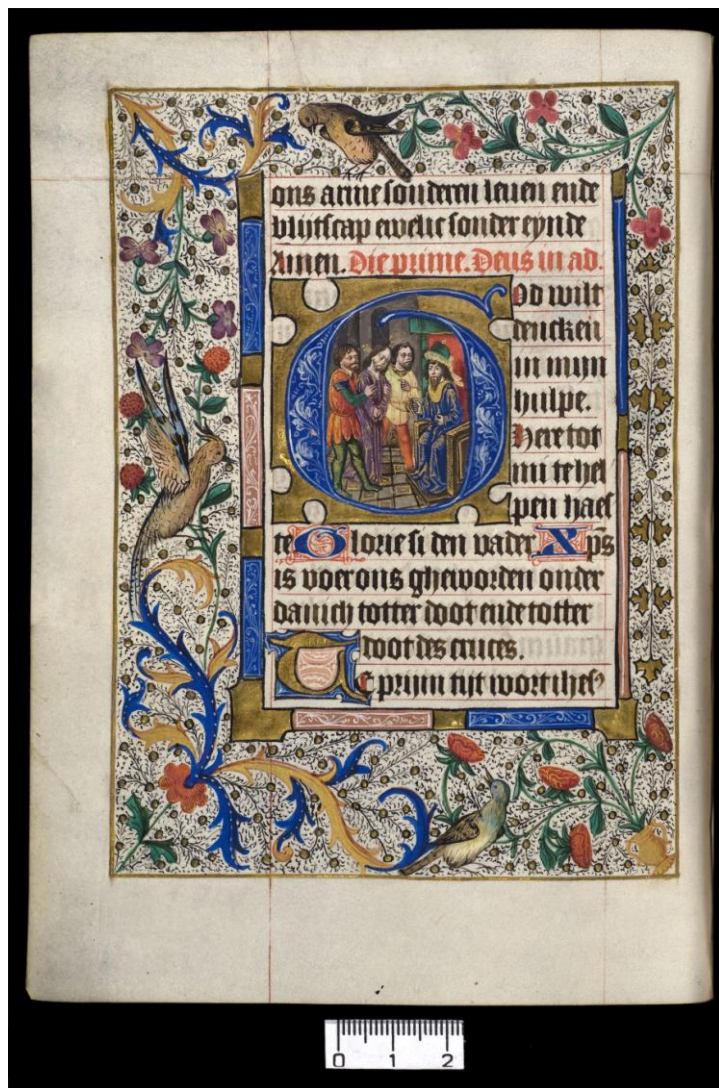 ons arme sonderen leuen ende
blijtscap ewelic sonder eynde
Amen. Die prime. Deus in ad.
God wilt
dencken
in mijn
hulpe.
Here tot
mi te hel
pen haes
te Glorie si den vader Xp̄s
is voer ons gheworden onder
danich totter doot ende totter
doot des cruces.
Te prijm tijt wort ihes⁹
0 1 2